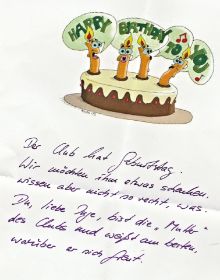 HAPPY BIRTHDAY TO YOU
Der Club hat Geburtstag.
Wir möchten ihm etwas schenken,
wissen aber nicht so recht was.
Du, liebe Inge, bist die „Mutter"
des Clubs und weißt am besten,
worüber er sich freut.